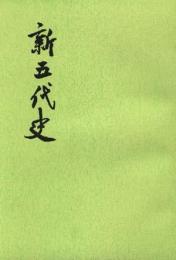 新五代史